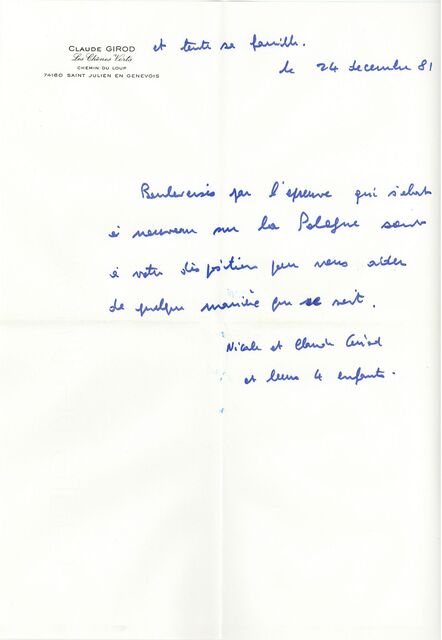 CLAUDE GIROD et toute sa famille.
Les Chênes Verts
CHEMIN DU LOUP
74160 SAINT JULIEN EN GENEVOIS
le 24 decembre 81
Bouleversés par l'épreuve qui s'abat
à nouveau sur la Pologne sommes
à votre disposition pour vous aider
de quelque manière que ce soit.
Nicole et Claude Girod
et leurs 4 enfants.